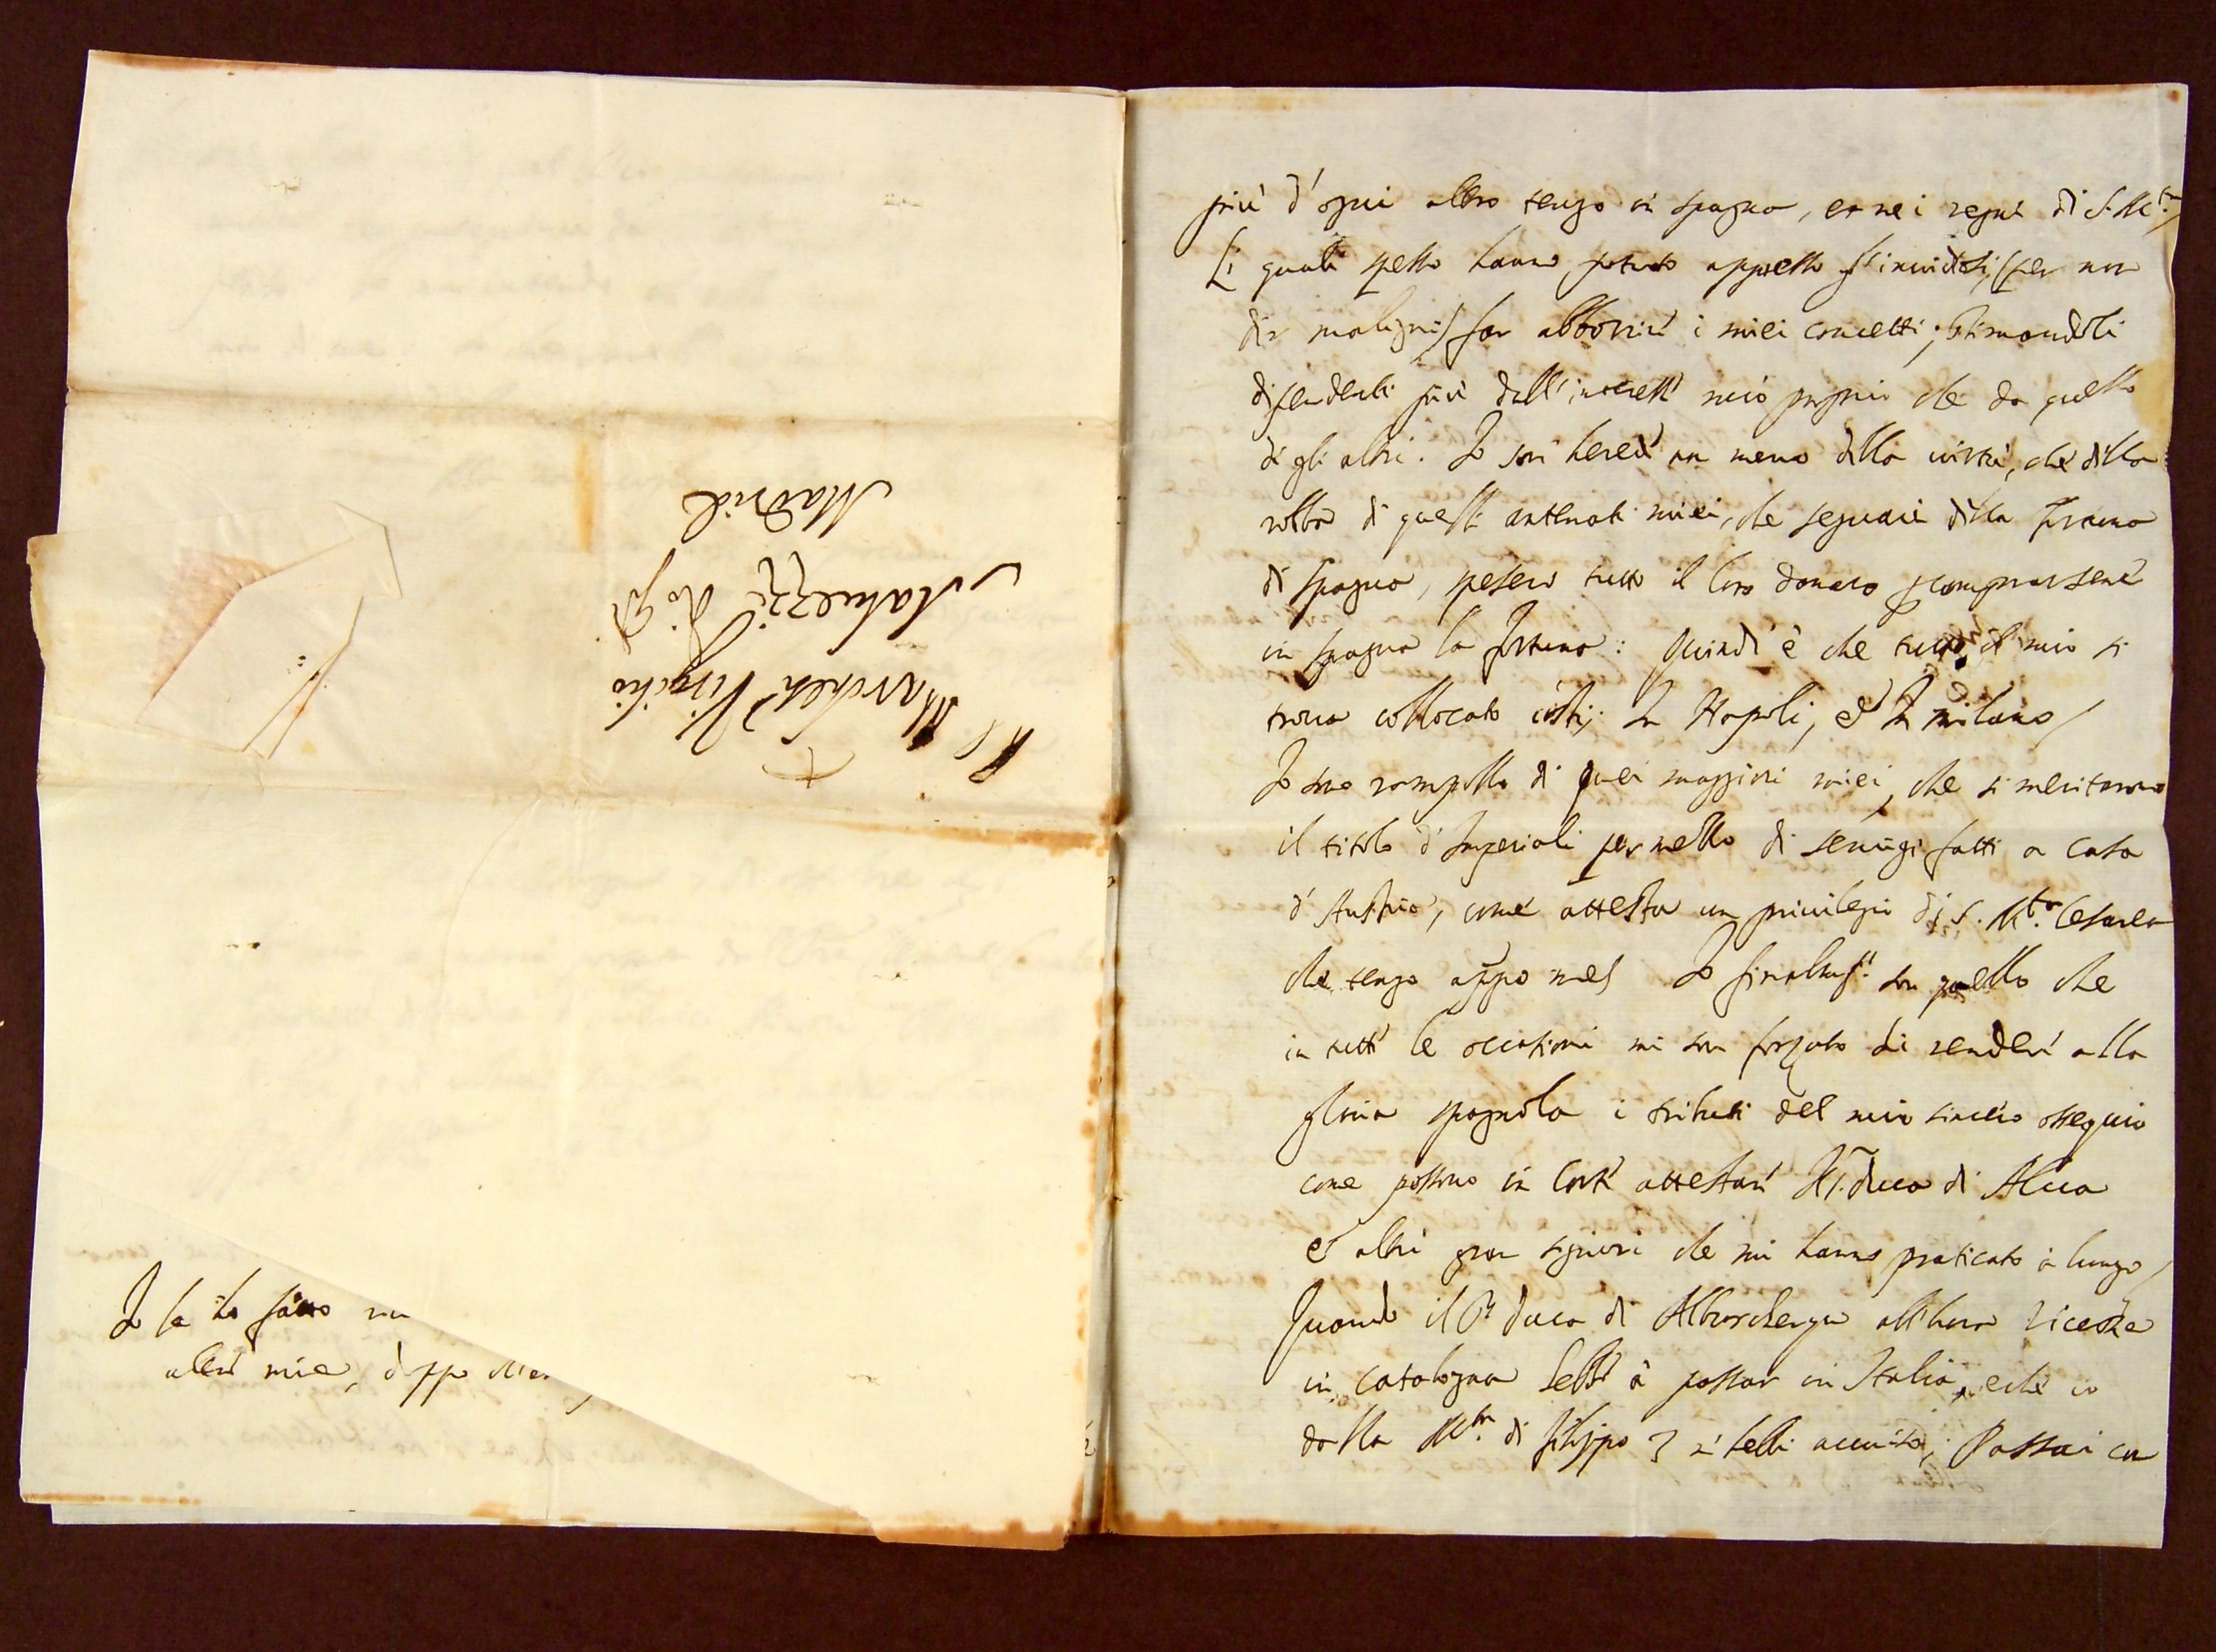 Al Marchese Virgilio
Malvezzi di g 
Madrid
Io la ho fatto
mie, doppo
più d'ogni altro tengo in Spagna, et ne i regni di S. M.tà
Li quali spesso hanno potuto appresso gl'invidiosi, (per non
dir maligni) far abborrire i miei concetti; stimandoli
dipendenti più dall'interesse mio proprio che da quello
di gli altri. Io son herede non meno della virtù, che della
robba di quelli antenati miei, che seguaci della
di Spagna, spesero tutto il loro denaro p comprarsene
in Spagna la fortuna: Quindi è che tutto il mio si
trova collocato costì, In Napoli, et In Milano
Io sono rampollo di quei maggiori miei, che si meritarono
il titolo d'Imperiali per mezzo di servigi fatti a casa
d'Austria, come attesta un privilegio di S. M.tà Cesarea
che tengo appo me. Io son quello che
in tutte le occasioni mi son forzato di rendere alla
gloria spagnola i tributi del mio sincero ossequio
come possono in Corte attestare duca di Alcca
et altri gran signori che mi hanno praticato a lungo
Quando il S.r duca di Alburcherque all'hora Vicerè
in Catalogna hebbe a passar in Italia, e che io
dalla M.tà di Filippo 3 n'hebbi avviso, Passai in